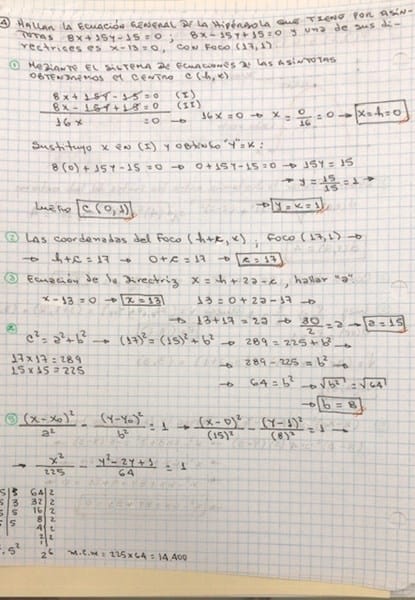 ④ Hallar la Ecuación General de la Hipérbola que tiene por asín-
totas 8x+15y-15=0; 8x-15y+15=0 y una de sus di-
rectrices es x-13=0, con foco (17,1).
① Mediante el sistema de ecuaciones de las asíntotas
obtendremos el centro C(h,k)
8x+15y-15=0 (I)
8x-15y+15=0 (II)
16x =0 → 16x=0 → x = 0/16 = 0 → x=h=0
Sustituyo x en (I) y obtengo "y"=k:
8(0)+15y-15=0 → 0+15y-15=0 → 15y=15
→ y = 15/15 = 1 →
Luego C(0,1) → y=k=1
② Las coordenadas del foco (h+c, k); foco (17,1) →
→ h+c=17 → 0+c=17 → c=17
③ Ecuación de la directriz x=h+2a-c, hallar "a"
x-13=0 → x=13 13=0+2a-17 →
→ 13+17=2a → 30/2=a → a=15
c²=a²+b² → (17)²=(15)²+b² → 289=225+b² →
17x17=289 → 289-225=b² →
15x15=225
→ 64=b² → √b²=√64
→ b=8
⑤ (x-x₀)²/a² - (y-y₀)²/b² = 1 → (x-0)²/(15)² - (y-1)²/(8)² = 1 →
→ x²/225 - y²-2y+1/64 = 1
5 | 3 64 | 2
5 | 3 32 | 2
5 | 5 16 | 2
5 | 5 8 | 2
4 | 2
2 | 2
5² 2⁶ M.C.M = 225x64 = 14,400